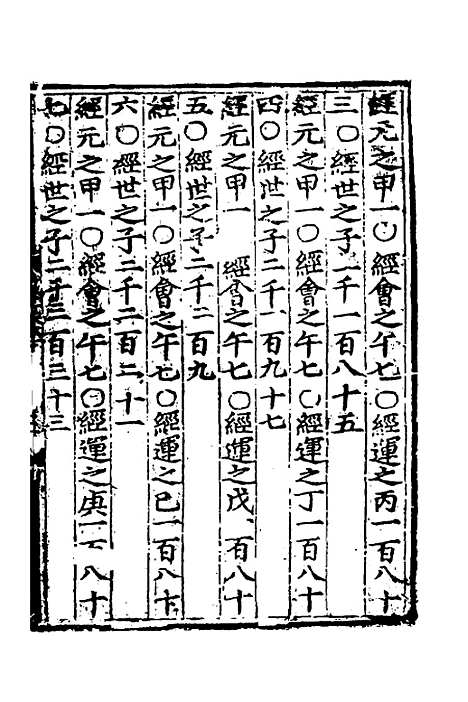 經元之甲一〇經會之午七〇經運之丙一百八十
三〇經世之子二千一百八十五
經元之甲一〇經會之午七〇經運之丁一百八十
四〇經世之子二千一百九十七
經元之甲一 經會之午七〇經運之戊一百八十
五〇經世之子二千二百九
經元之甲一〇經會之午七〇經運之已一百八十
六〇經世之子二千二百二十一
經元之甲一〇經會之午七〇經運之庚一百八十
七〇經世之子二千二百三十三